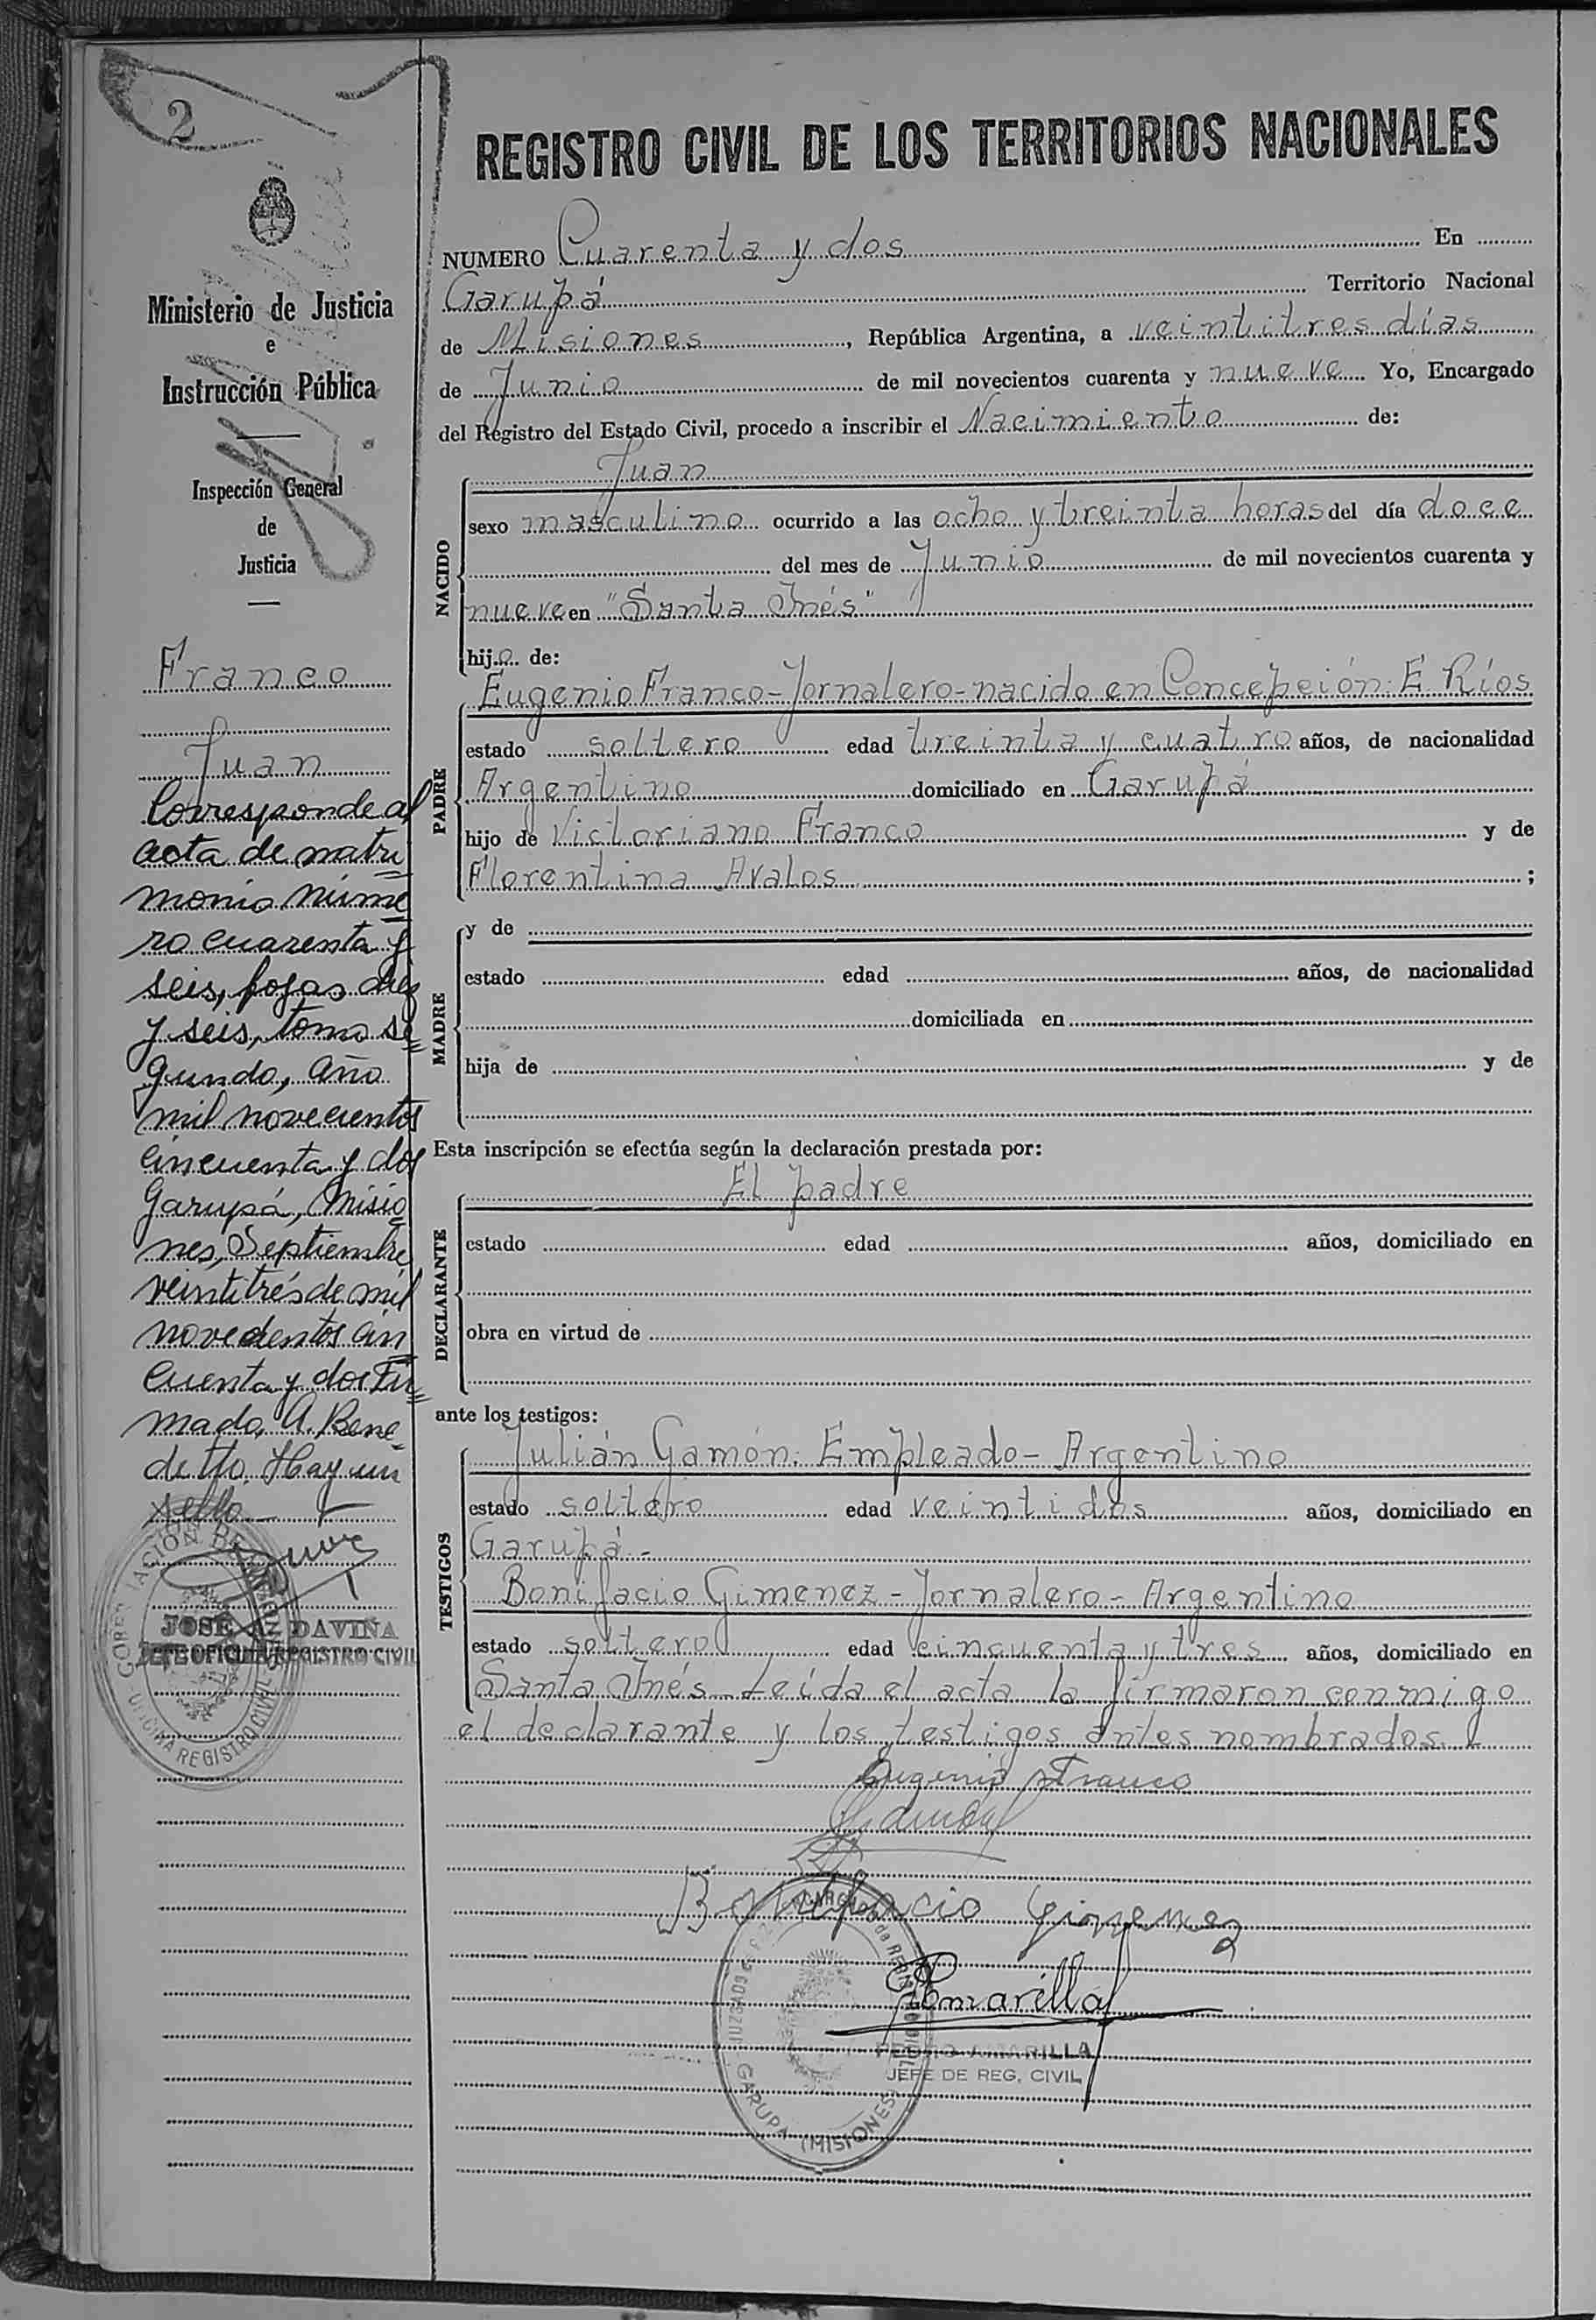 2
Ministerio de Justicia
e
Instrucción Pública
Inspección General
de
Justicia
Franco
Juan
Corresponde al
acta de matri
monio núme
ro cuarenta y
seis, fojas diez
y seis, tomo se
gundo, año
mil novecientos
cincuenta y dos
Garupá, Misio
nes, Septiembre
veintitrés de mil
novecientos cin
cuenta y dos Fir
mado, A. Bene
detto. Hay un
sello
JOSÉ A. DAVIÑA
JEFE OFICINA REGISTRO CIVIL
OFICINA REGISTRO CIVIL
REGISTRO CIVIL DE LOS TERRITORIOS NACIONALES
NUMERO Cuarenta y dos En
Garupá Territorio Nacional
de Misiones, República Argentina, a veintitres días
de Junio de mil novecientos cuarenta y nueve Yo, Encargado
del Registro del Estado Civil, procedo a inscribir el Nacimiento de:
Juan
NACIDO
sexo masculino ocurrido a las ocho y treinta horas del día doce
del mes de Junio de mil novecientos cuarenta y
nueve en "Santa Inés"
hijo de:
Eugenio Franco - Jornalero - nacido en Concepción: E Ríos
PADRE
estado soltero edad treinta y cuatro años, de nacionalidad
Argentino domiciliado en Garupá
hijo de Victoriano Franco y de
Florentina Avalos ;
MADRE
y de
estado edad años, de nacionalidad
domiciliada en
hija de y de
Esta inscripción se efectúa según la declaración prestada por:
El padre
DECLARANTE
estado edad años, domiciliado en
obra en virtud de
ante los testigos:
TESTIGOS
Julián Gamón: Empleado - Argentino
estado soltero edad veintidos años, domiciliado en
Garupá -
Bonifacio Gimenez - Jornalero - Argentino
estado soltero edad cincuenta y tres años, domiciliado en
Santa Inés - Leída el acta la firmaron conmigo
el declarante y los testigos antes nombrados.
Eugenio Franco
Bonifacio Gimenez
PEDRO AMARILLA
JEFE DE REG. CIVIL
GARUPA (MISIONES)